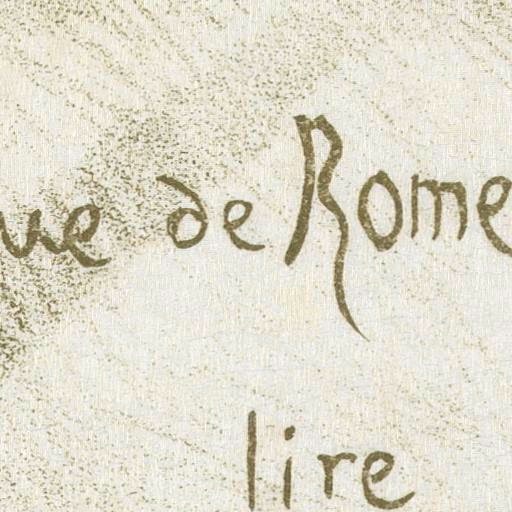 ue de Rome
lire